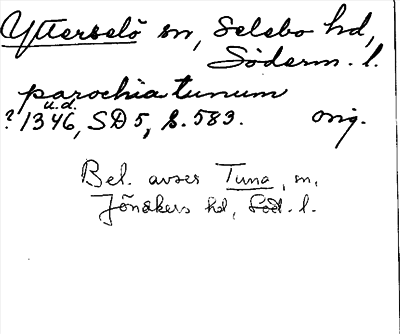 Ytterselö sn, Selebo hd,
Söderm. l.
parochia tunum
u.d.
? 1346, SD 5, s. 583. orig.
Bel. avser Tuna, sn,
Jönåkers hd, Söd. l.